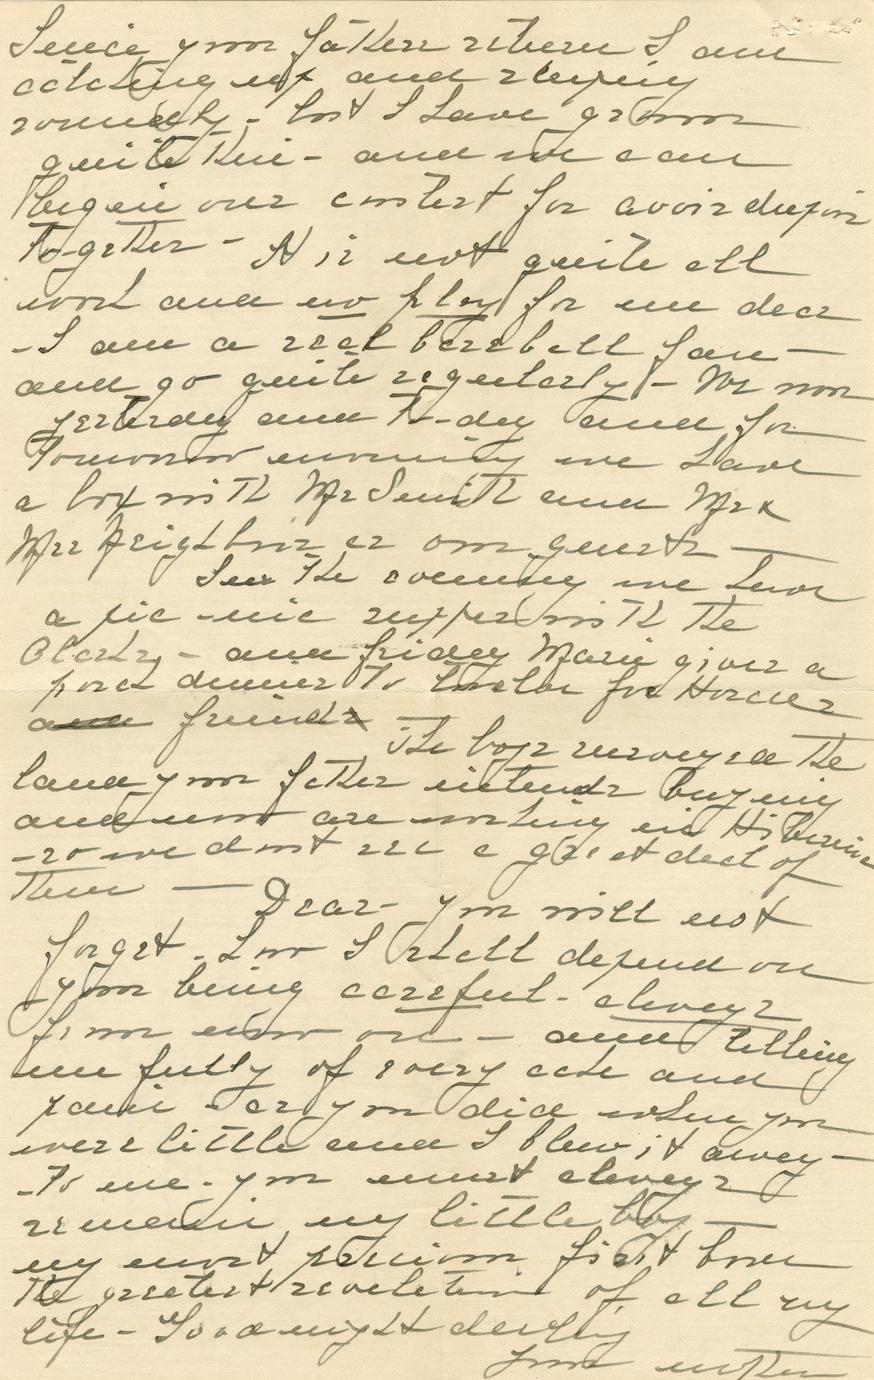 Since your father's return I am
catching up and sleeping
soundly - but I have grown
quite thin - and we can
begin our contest for avoirdupois
to-gether - It is not quite all
work and no play for me dear
- I am a real baseball fan -
and go quite regularly - We won
yesterday and to-day and for
tomorrow morning we have
a box with Mr Smith and Mr &
Mrs Neighbors as our guests -
In the evening we have
a pic-nic supper with the
Clarks, - and friday Marie gives a
porch dinner to twelve for Horaces
and friends -
The boys surveyed the
land your father intends buying
and now are working in Hibernia
- so we dont see a great deal of
them -
Dear - you will not
forget - how I shall depend on
your being careful - always
from now on - and telling
me fully of every ache and
pain - as you did when you
were little and I blew it away -
- To me - you must always
remain my little boy -
my most precious first born
the greatest revelation of all my
life - Good night darling
Your mother